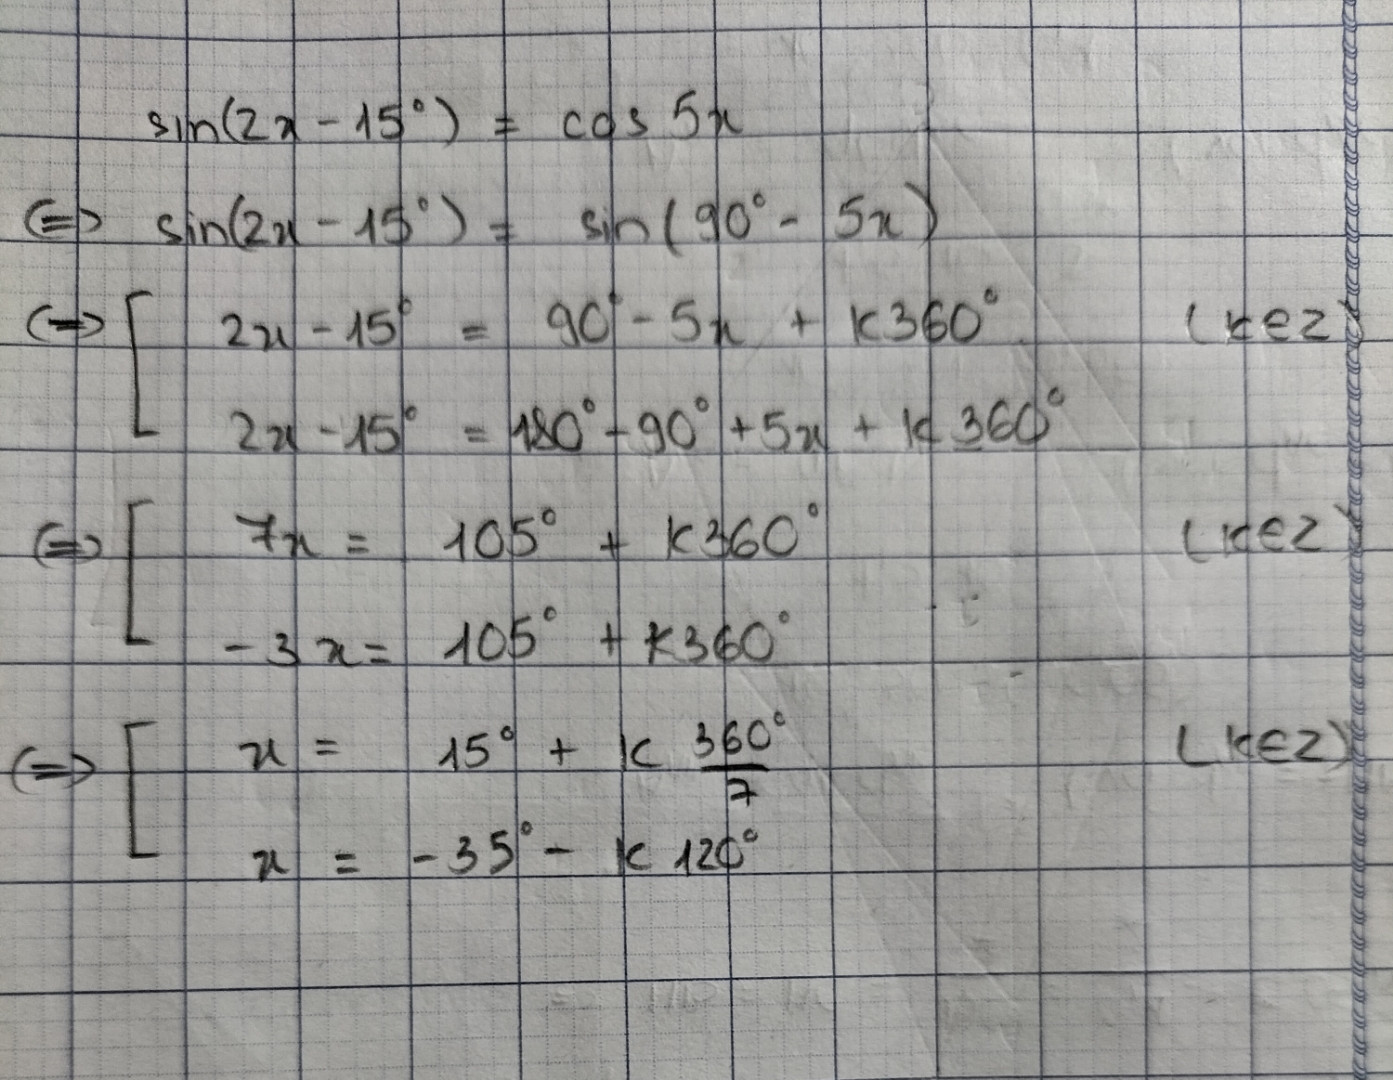 sin(2x - 15°) = cos 5x
<=> sin(2x - 15°) = sin(90° - 5x)
<=> [ 2x - 15° = 90° - 5x + k360° (k∈Z)
2x - 15° = 180° - 90° + 5x + k360°
<=> [ 7x = 105° + k360° (k∈Z)
-3x = 105° + k360°
<=> [ x = 15° + k 360°/7 (k∈Z)
x = -35° - k120°